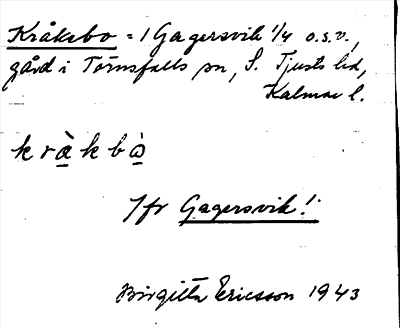 Kråkebo = 1 Gagersvik 1/4 o.s.v.,
gård i Törnsfalls sn, S. Tjusts hd,
Kalmar l.
kràkbò
Jfr Gagersvik!
Birgitta Ericsson 1943